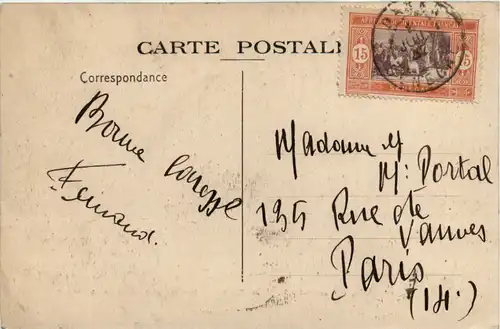 CARTE POSTALE
Correspondance
Bonne caresse
Fernand.
15
15
Madame et
Mr Portal
135 Rue de
Vanves
Paris
(14e)